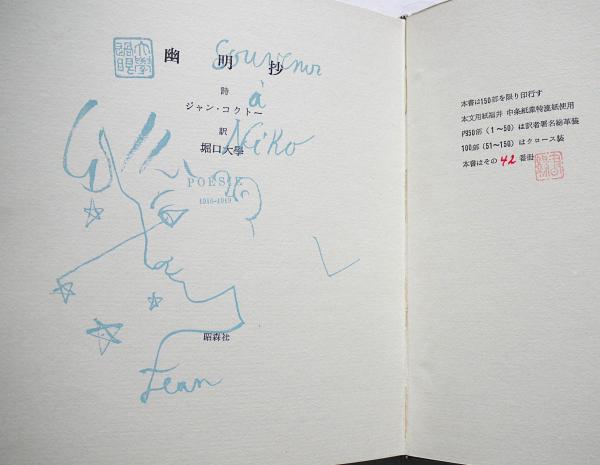 Souvenir
幽明抄
à
詩
ジャン・コクトー
Niko
訳
堀口大學
POÉSIE
1916-1919
昭森社
Jean
本書は150部を限り印行す
本文用紙福井 中条紙業特漉紙使用
内50部（1〜50）は訳者署名総革装
100部（51〜150）はクロース装
本書はその 42 番冊